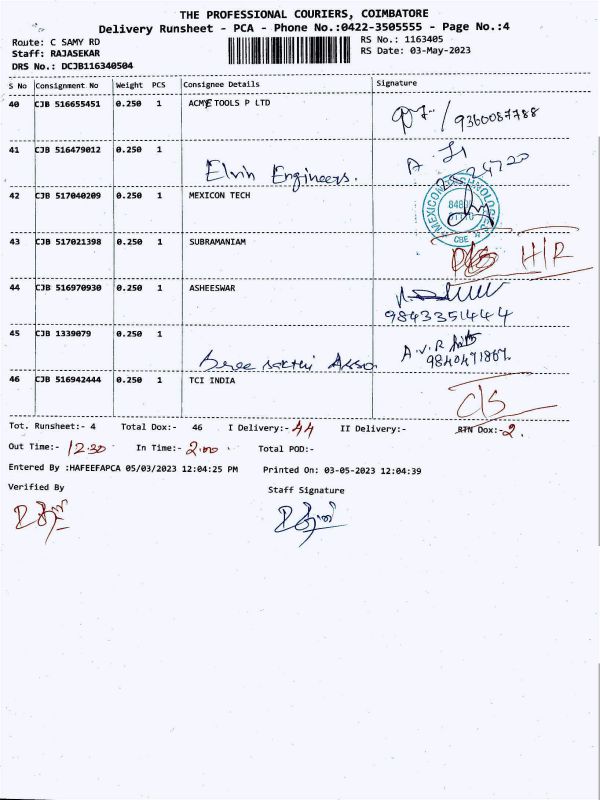 THE PROFESSIONAL COURIERS, COIMBATORE
Delivery Runsheet - PCA - Phone No.:0422-3505555 - Page No.:4
Route: C SAMY RD RS No.: 1163405
Staff: RAJASEKAR RS Date: 03-May-2023
DRS No.: DCJB116340504
S No Consignment No Weight PCS Consignee Details Signature
40 CJB 516655451 0.250 1 ACME TOOLS P LTD 9360087788
41 CJB 516479012 0.250 1 Elvin Engineers.
42 CJB 517040209 0.250 1 MEXICON TECH
43 CJB 517021398 0.250 1 SUBRAMANIAM H/R
44 CJB 516970930 0.250 1 ASHEESWAR
9843351444
45 CJB 1339079 0.250 1 Sree sakthi Asso A.V.R
9840471867
46 CJB 516942444 0.250 1 TCI INDIA
Tot. Runsheet:- 4 Total Dox:- 46 I Delivery:- 44 II Delivery:- RTN Dox:- 2.
Out Time:- 12.30 In Time:- 2.00 Total POD:-
Entered By :HAFEEFAPCA 05/03/2023 12:04:25 PM Printed On: 03-05-2023 12:04:39
Verified By Staff Signature